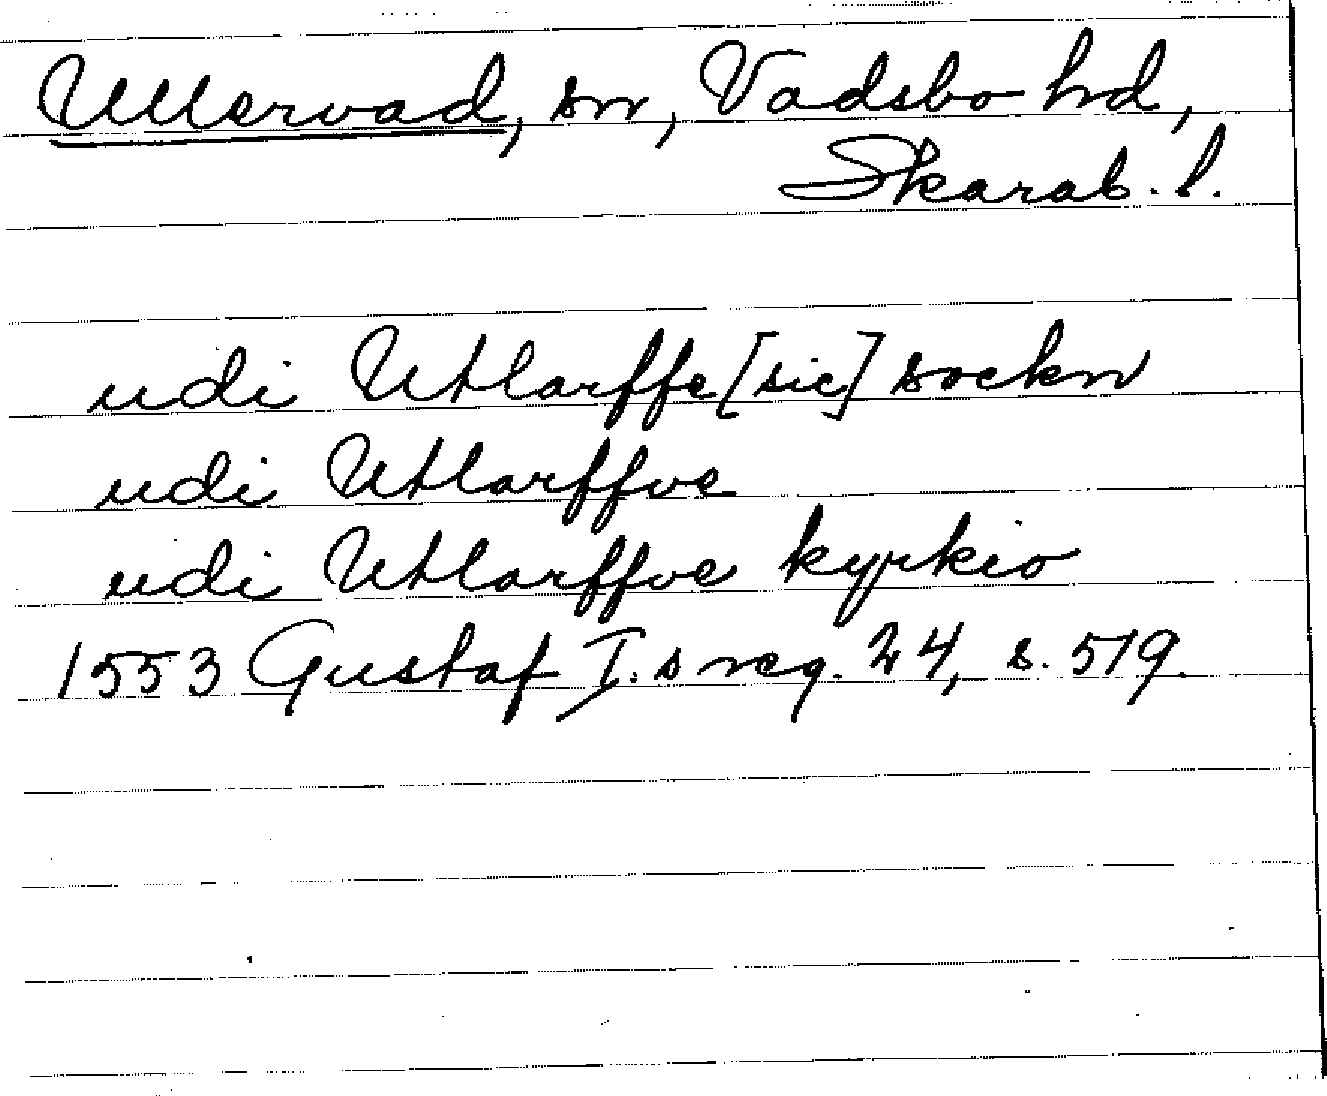 Ullervad, sn, Vadsbo hd,
Skarab. l.
udi Utlarffe [sic] sockn
udi Utlarffve
udi Utlarffve kyrkio
1553 Gustaf I. s reg. 24, s. 519.